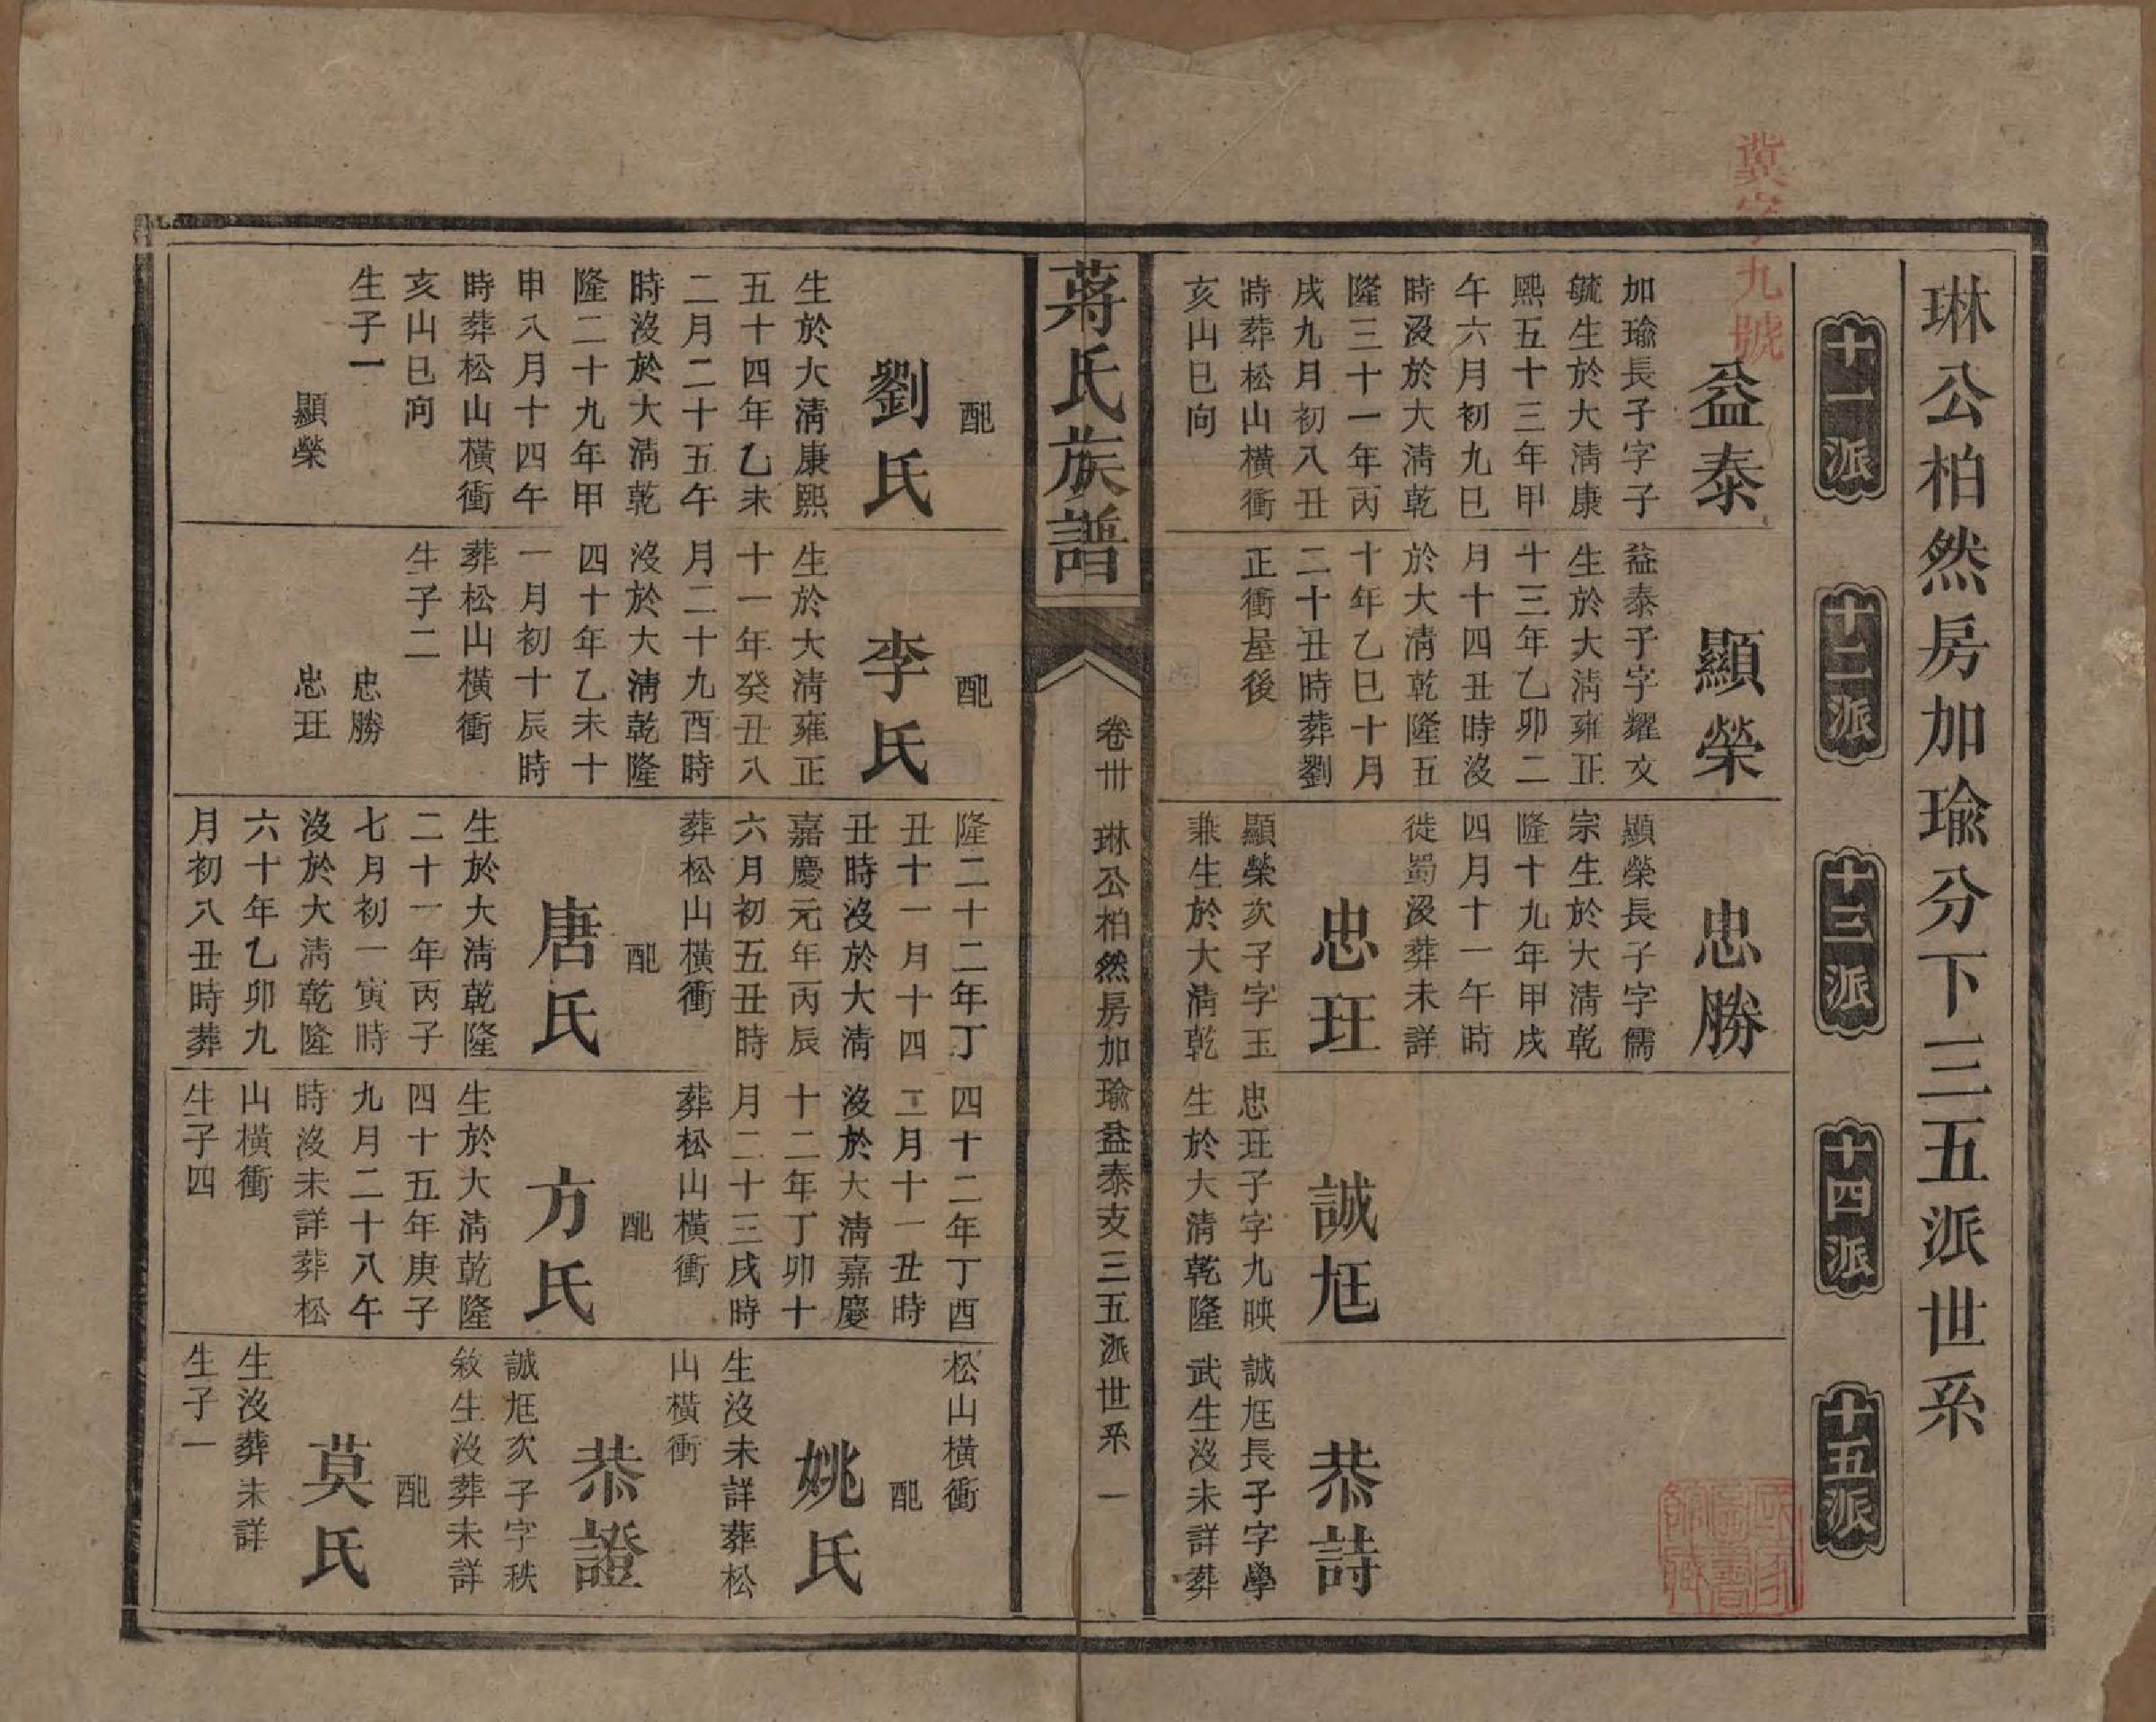 冀字九號
琳公柏然房加瑜分下三五派世系
十一派
十二派
十三派
十四派
十五派
益泰
加瑜長子字子
毓生於大清康
熙五十三年甲
午六月初九巳
時沒於大清乾
隆三十一年丙
戌九月初八丑
時葬松山橫衝
亥山巳向
顯榮
益泰子字耀文
生於大清雍正
十三年乙卯二
月十四丑時沒
於大清乾隆五
十年乙巳十月
二十丑時葬劉
正衝屋後
忠勝
顯榮長子字儒
宗生於大清乾
隆十九年甲戌
四月十一午時
徙蜀沒葬未詳
忠玨
顯榮次子字玉
兼生於大清乾
誠尫
忠玨子字九映
生於大清乾隆
恭詩
誠尫長子字學
武生沒未詳葬
蔣氏族譜
卷卅 琳公柏然房加瑜益泰支三五派世系 一
配
劉氏
生於大清康熙
五十四年乙未
二月二十五午
時沒於大清乾
隆二十九年甲
申八月十四午
時葬松山橫衝
亥山巳向
生子一
顯榮
配
李氏
生於大清雍正
十一年癸丑八
月二十九酉時
沒於大清乾隆
四十年乙未十
一月初十辰時
葬松山橫衝
生子二
忠勝
忠玨
隆二十二年丁
丑十一月十四
丑時沒於大清
嘉慶元年丙辰
六月初五丑時
葬松山橫衝
配
唐氏
生於大清乾隆
二十一年丙子
七月初一寅時
沒於大清乾隆
六十年乙卯九
月初八丑時葬
四十二年丁酉
二月十一丑時
沒於大清嘉慶
十二年丁卯十
月二十三戌時
葬松山橫衝
配
方氏
生於大清乾隆
四十五年庚子
九月二十八午
時沒未詳葬松
山橫衝
生子四
松山橫衝
配
姚氏
生沒未詳葬松
山橫衝
恭證
誠尫次子字秩
敘生沒葬未詳
配
莫氏
生沒葬未詳
生子一